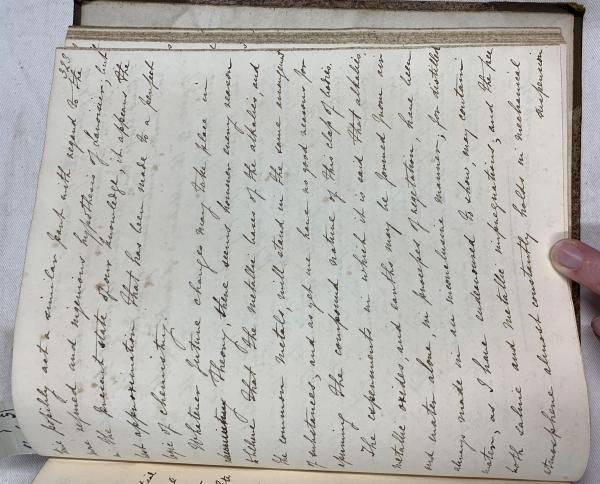 323
possibly act a similar part with regard to the
refined and ingenious hypothesis of Lavoisier; but
in the present state of our knowledge, it appears the
best approximation that has been made to a perfect
logic of chemistry.
Whatever future changes may take place in
theory, there seems however every reason
to believe that the metallic bases of the alkalies and
the common metals, will stand in the same arrangement
of substances; and as yet we have no good reasons for
assuming the compound nature of this class of bodies.
The experiments in which it is said that alkalies,
metallic oxides and earths may be formed from air
and water alone, in processes of vegetation have been
always made in an inconclusive manner; for distilled
water, as I have endeavoured to show may contain
both saline and metallic impregnations; and the free
atmosphere almost constantly holds in mechanical
suspension